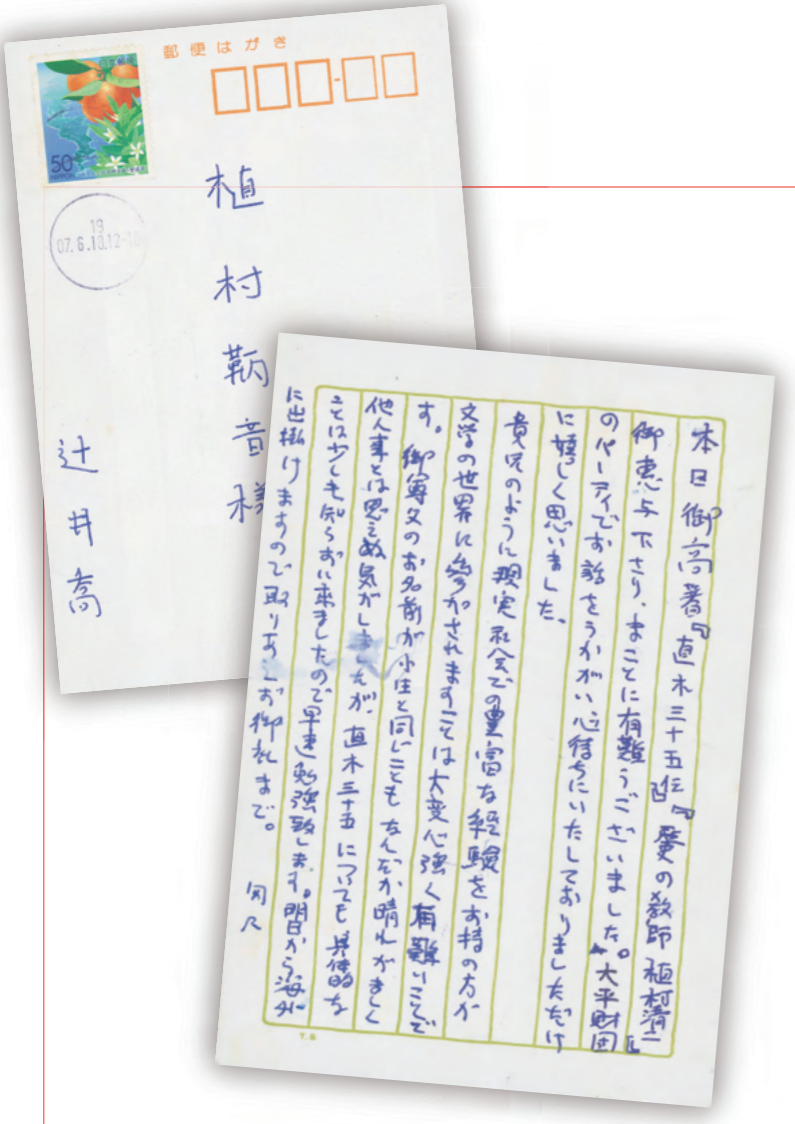 郵便はがき
日本郵便
50
NIPPON
19
07.6.18.12-18
植村鞆音様
辻井喬
本日御高著『直木三十五伝』『歴史の教師 植村清二』
御恵与下さり、まことに有難うございました。大平財団
のパーティでお話をうかがい心待ちにいたしておりましただけ
に嬉しく思いました。
貴兄のように現実社会での豊富な経験をお持の方が
文学の世界に参加されますことは大変心強く有難いことで
す。御尊父のお名前が小生と同じこともなんだか晴れがましく
他人事とは思えぬ気がしましたが、直木三十五についても具体的な
ことは少しも知らずに来ましたので早速勉強致します。明日から海外
に出掛けますので取りあえず御礼まで。
T.S